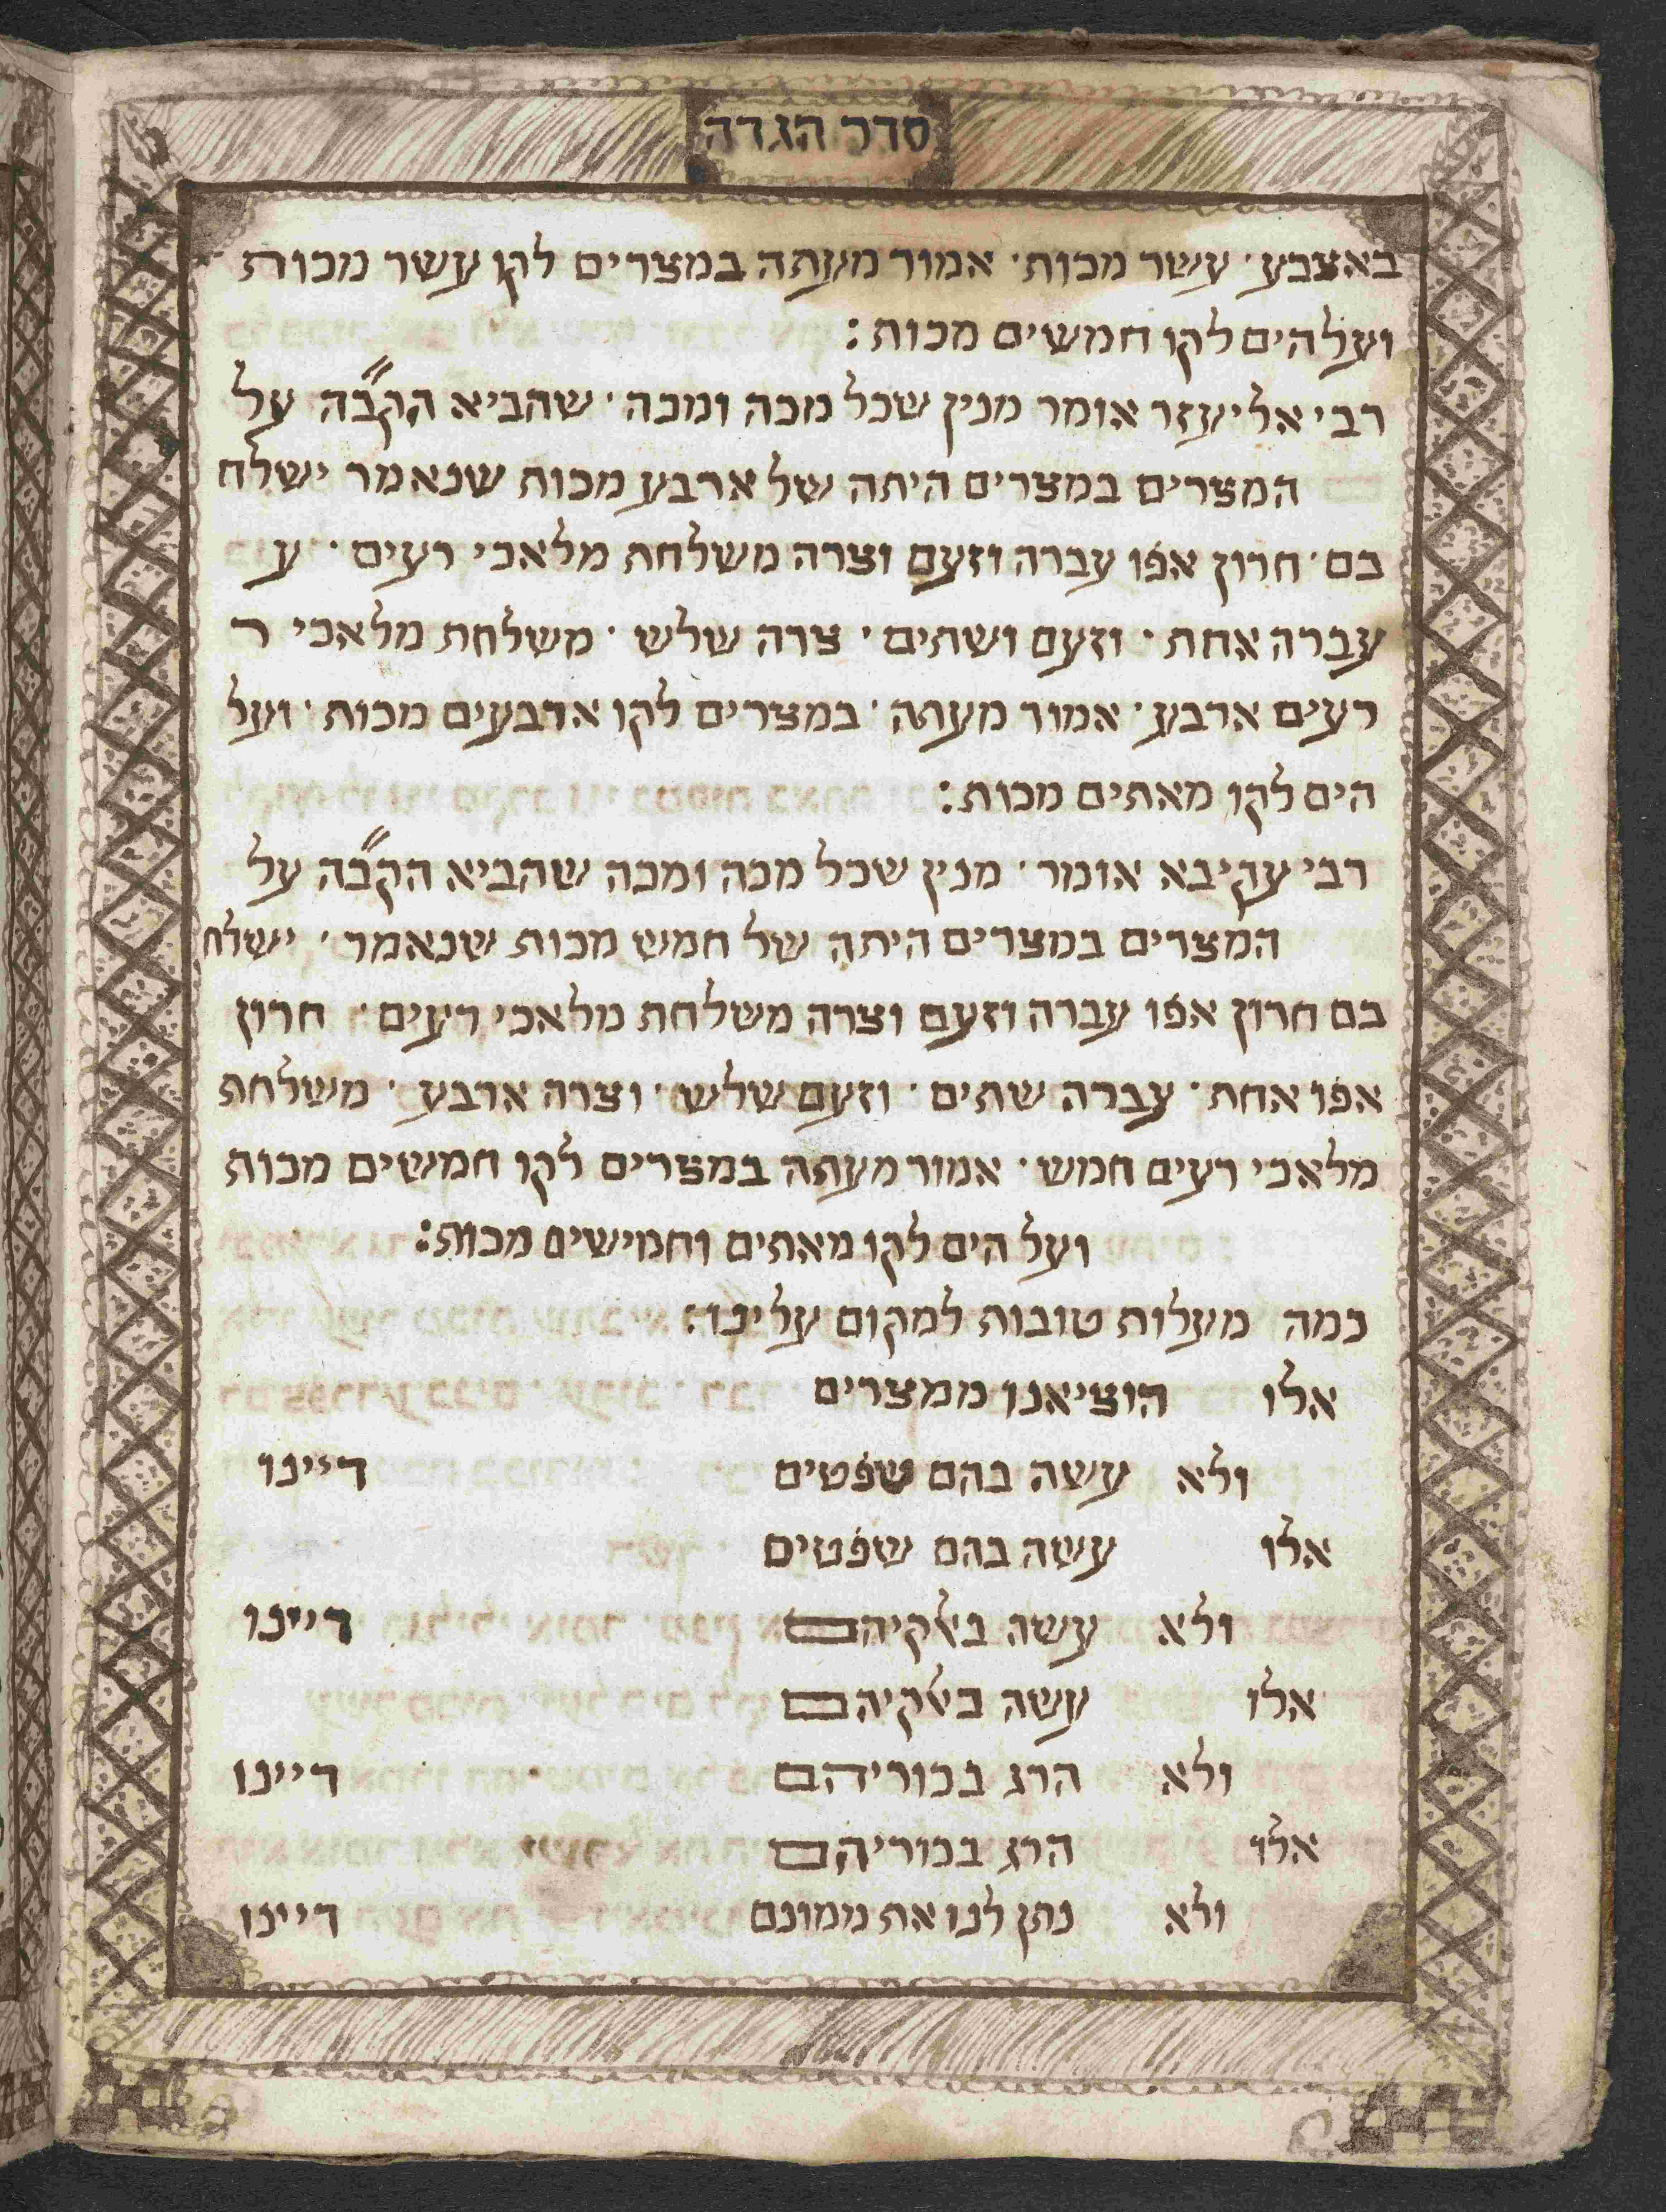 סדר הגדה
באצבע· עשר מכות· אמור מעתה במצרים לקו עשר מכות
ועל הים לקו חמשים מכות:
רבי אליעזר אומר מנין שכל מכה ומכה· שהביא הקב״ה על
המצרים במצרים היתה של ארבע מכות שנאמר ישלח
בם· חרון אפו עברה וזעם וצרה משלחת מלאכי רעים· ע
עברה אחת· וזעם ושתים· צרה שלש· משלחת מלאכי ר
רעים ארבע· אמור מעתה· במצרים לקו ארבעים מכות· ועל
הים לקו מאתים מכות:
רבי עקיבא אומר· מנין שכל מכה ומכה שהביא הקב״ה על
המצרים במצרים היתה של חמש מכות שנאמר· ישלח
בם חרון אפו עברה וזעם וצרה משלחת מלאכי רעים· חרון
אפו אחת· עברה שתים· וזעם שלש· וצרה ארבע· משלחת
מלאכי רעים חמש· אמור מעתה במצרים לקו חמשים מכות
ועל הים לקו מאתים וחמישים מכות:
כמה מעלות טובות למקום עלינו:
אלו הוציאנו ממצרים
ולא עשה בהם שפטים דיינו
אלו עשה בהם שפטים
ולא עשה באקיהם דיינו
אלו עשה באקיהם
ולא הרג בכוריהם דיינו
אלו הרג בכוריהם
ולא נתן לנו את ממונם דיינו